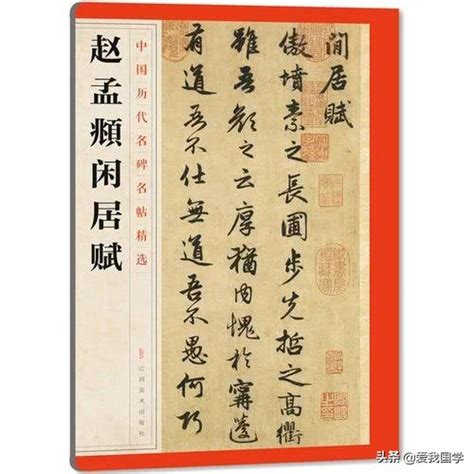 赵孟頫闲居赋
中国历代名碑名帖精选
江西美术出版社
閒居賦
傲墳素之長圃步先哲之高衢
雖吾顏之云厚猶內愧於甯蘧
有道吾不仕無道吾不愚何巧
头条 @爱我国学